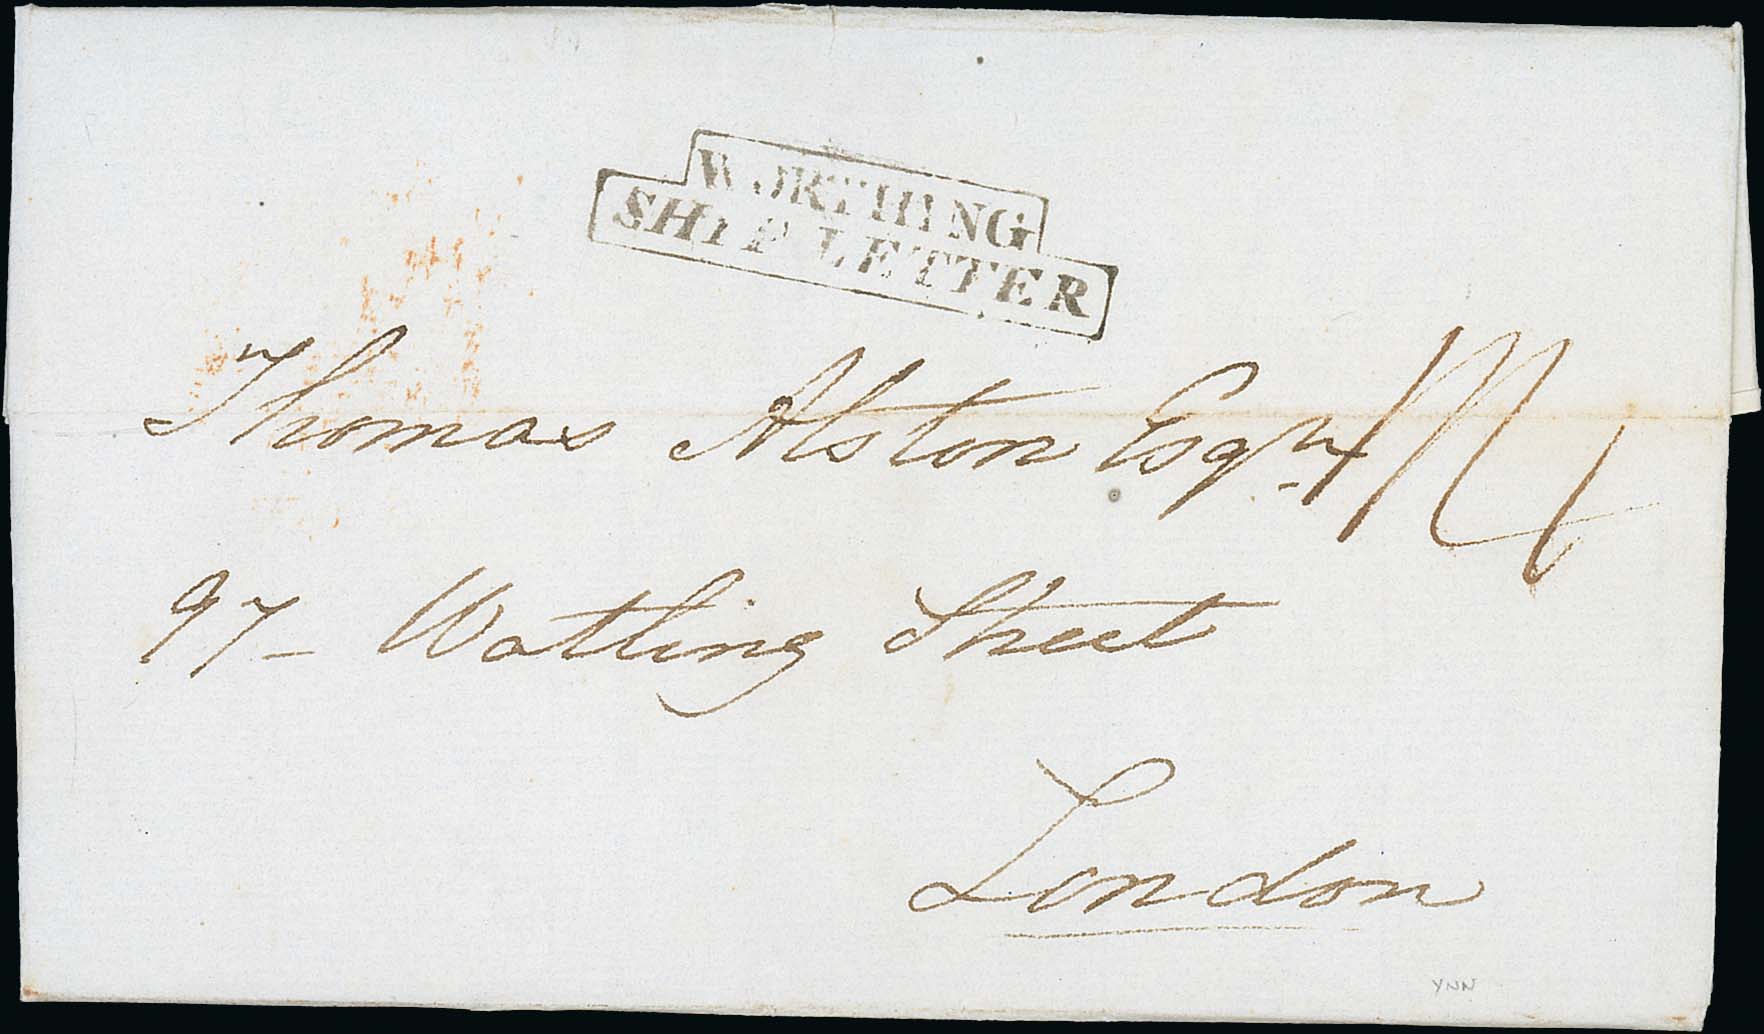 WORTHING
SHIP LETTER
Thomas Alston Esqre
97- Watling Street
London
YNN